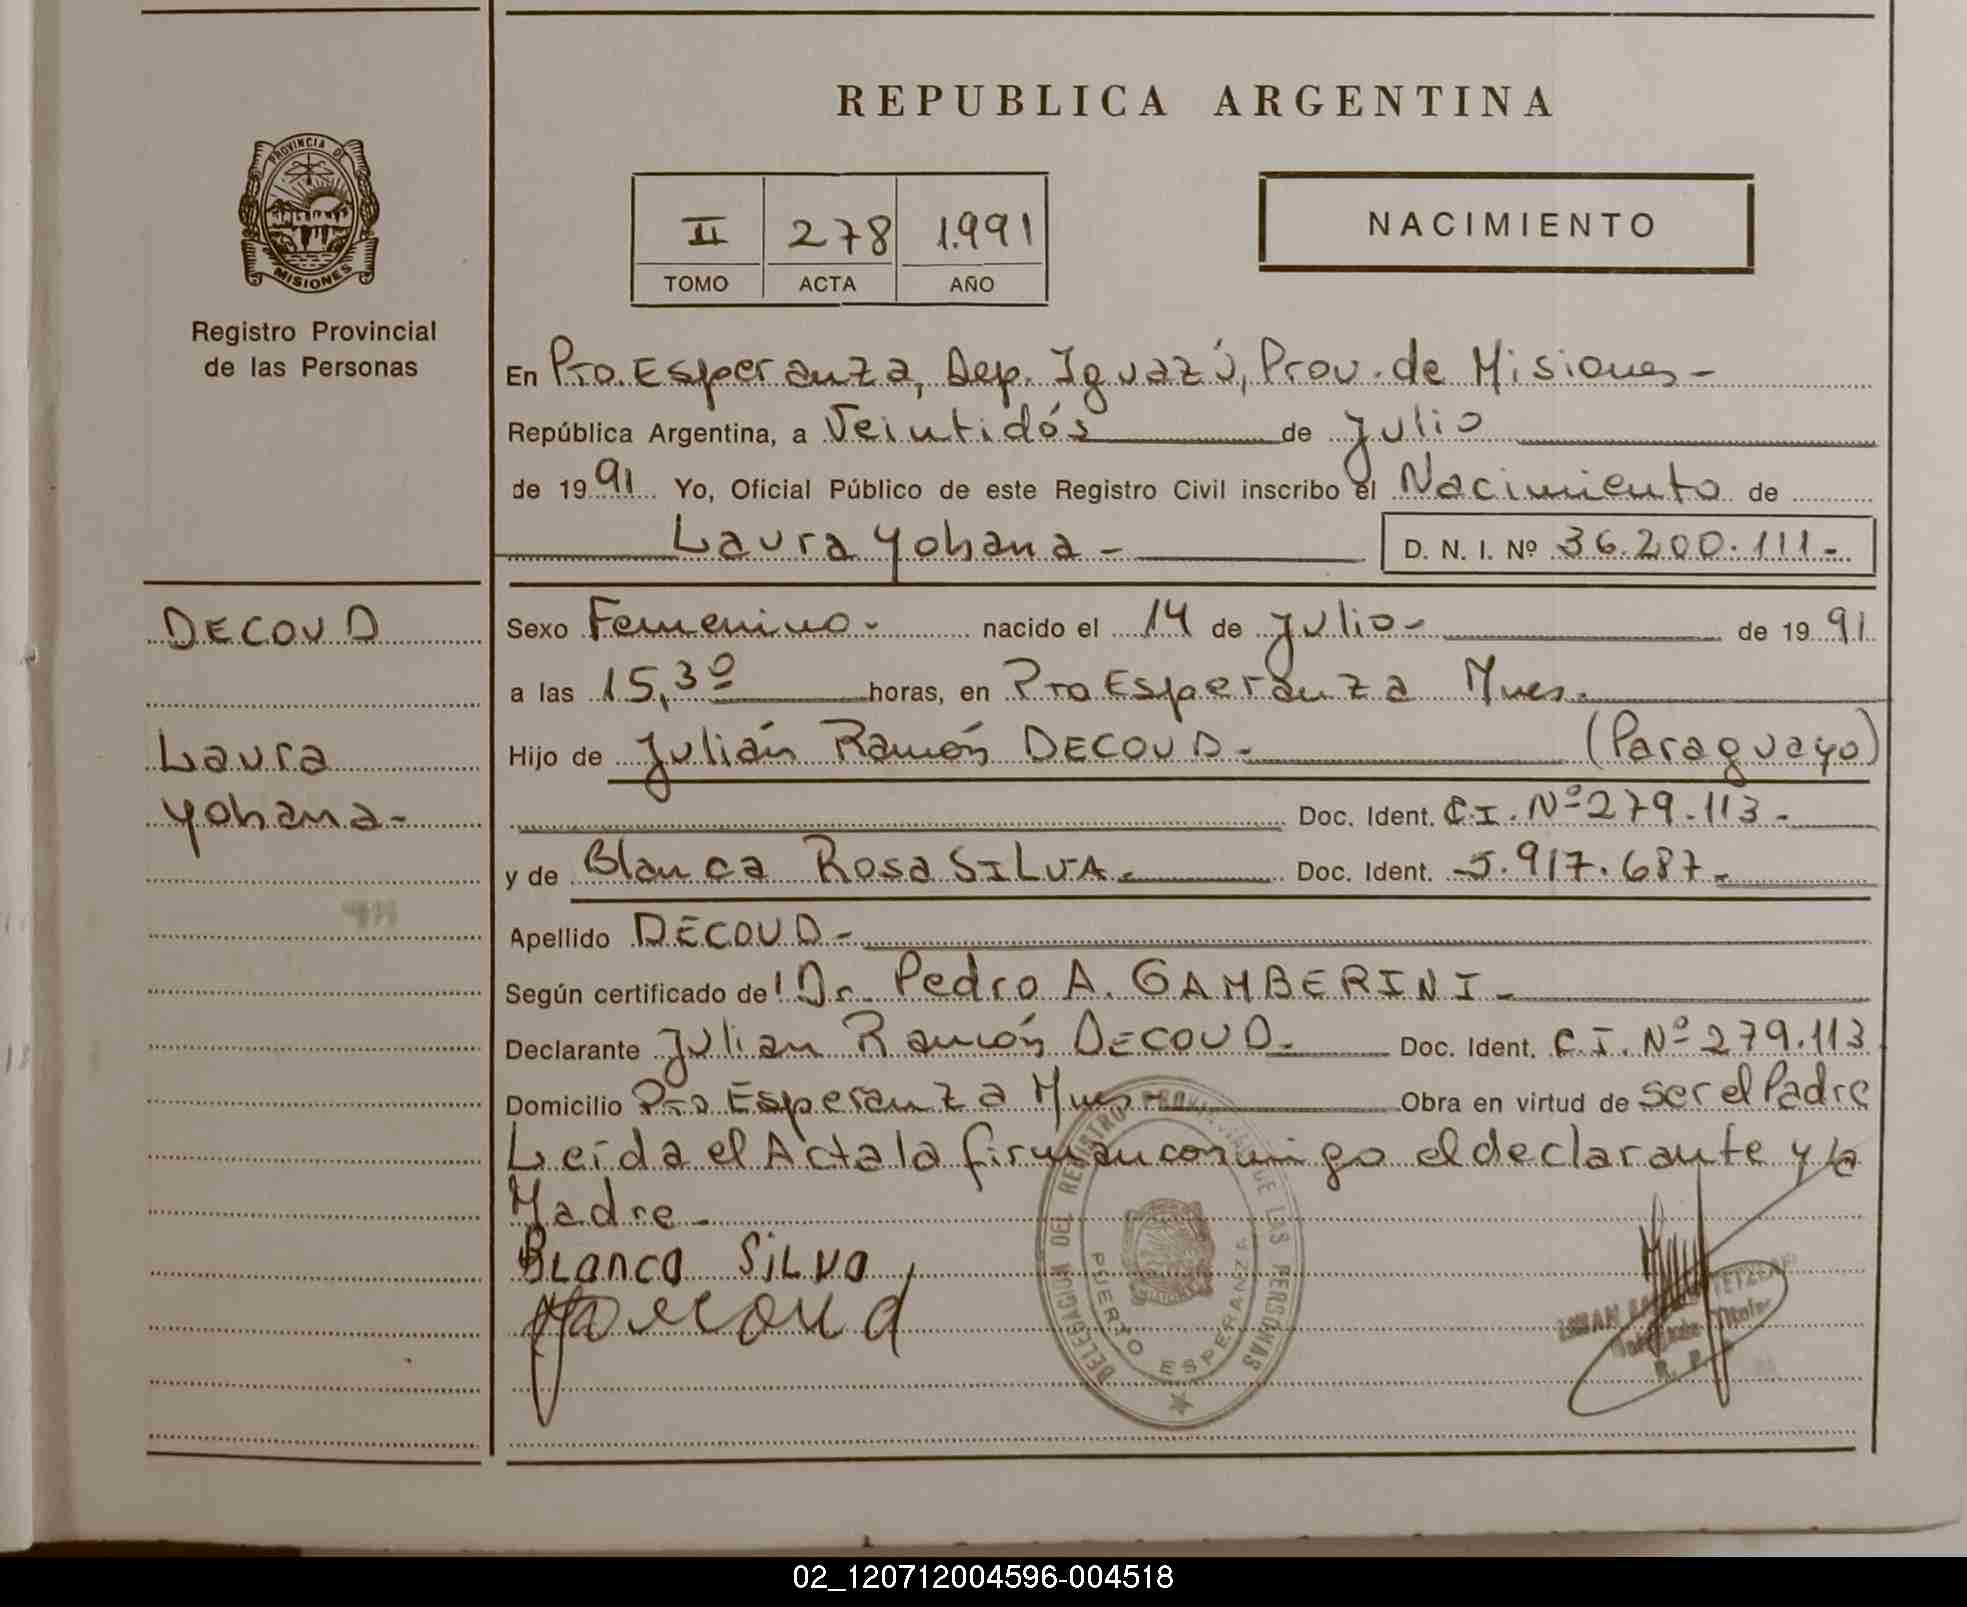 REPUBLICA ARGENTINA
PROVINCIA DE
MISIONES
Registro Provincial
de las Personas
II 278 1.991
TOMO ACTA AÑO
NACIMIENTO
En Pto. Esperanza, Dep. Iguazú, Prov. de Misiones -
República Argentina, a Veintidós de Julio
de 1991 Yo, Oficial Público de este Registro Civil inscribo el Nacimiento de
Laura Yohana -
D. N. I. Nº 36.200.111 -
DECOUD
Laura
Yohana -
Sexo Femenino - nacido el 14 de Julio - de 1991
a las 15,30 horas, en Pto Esperanza Mnes.
Hijo de Julián Ramón DECOUD - (Paraguayo)
Doc. Ident. C.I. Nº 279.113 -
y de Blanca Rosa SILVA. - Doc. Ident. 5.917.687 -
Apellido DECOUD -
Según certificado del Dr. Pedro A. GAMBERINI -
Declarante Julian Ramón DECOUD - Doc. Ident. C.I. Nº 279.113
Domicilio Pto Esperanza Mnes - Obra en virtud de ser el Padre
Leída el Acta la firman conmigo el declarante y la
Madre -
Blanca SiLva
DELEGACION DEL REGISTRO PROVINCIAL DE LAS PERSONAS
PUERTO ESPERANZA
Titular
02_120712004596-004518